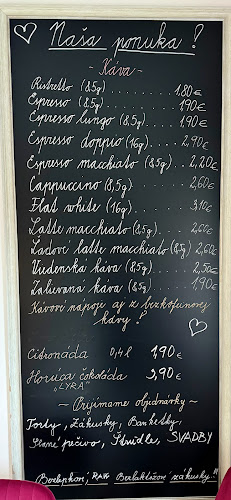 Naša ponuka!
- Káva -
Ristretto (8,5g) ........ 1,80€
Espresso (8,5g) ........ 1,90€
Espresso lungo (8,5g) ........ 1,90€
Espresso doppio (16g) ..... 2,90€
Espresso macchiato (8,5g) ... 2,20€
Cappuccino (8,5g) ....... 2,60€
Flat white (16g) ....... 3,10€
Latte macchiato (8,5g) .... 2,60€
Ľadové latte macchiato (8,5g) 2,60€
Viedenská káva (8,5g) ...... 2,50€
Zalievaná káva (8,5g) ..... 1,90€
Kávové nápoje aj z bezkofeínovej
kávy!
Citronáda 0,4l 1,90€
Horúca čokoláda 3,90€
"LYRA"
- Prijímame objednávky -
Torty, Zákusky, Banketky,
Slané pečivo, Štrúdle, SVADBY
Bezlepkové, RAW Bezlaktózové zákusky!!